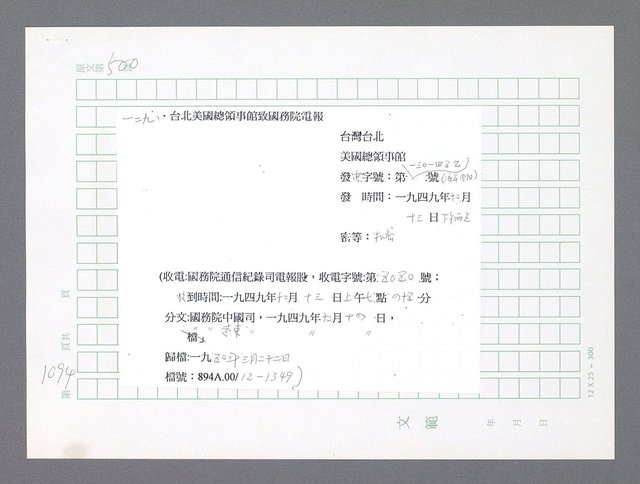 原文第5020
一二九、台北美國總領事館致國務院電報
台灣台北
美國總領事館
發電字號：第 號
發 時間：一九四九年十二月
十三日下午
密等：機密
(收電:國務院通信紀錄司電報股，收電字號:第5020號；
收到時間:一九四九年十二月十三日上午七點四十五分
分文:國務院中國司，一九四九年 月十四日，
檔
歸檔:一九五0年三月二十二日
檔號：894A.00/12-1349)
頁
頁共
1094
第
12X25=300
文範
年 月 日